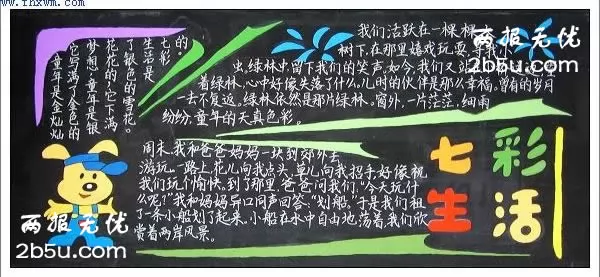 童年是金灿灿
它写满了金色的
梦想,童年是银
花花的?它下满
了银色的雪花。
生活是
七彩
的。
我们活跃在一棵棵
树下,在那里嬉戏玩耍,
虫,绿林中,留下我们的笑声,如今,我们又
着绿林,心中好像失落了什么,儿时的伙伴是那么幸福。曾有的岁月
一去不复返。绿林依然是那片绿林。窗外,一片茫茫,细雨
纷纷,童年的天真色彩。
周末,我和爸爸妈妈一块到郊外去
游玩,一路上,花儿向我点头,草儿向我招手好像祝
我们玩个愉快,到了那里,爸爸问我们,“今天玩什
么呢?”我和妈妈异口同声回答:“划船。”于是我们租
了一条小船划了起来。小船在水中自由地荡着,我们欣
赏着两岸风景。
七彩
生活
两报无忧
2b5u.com
两报无忧
2b5u.com